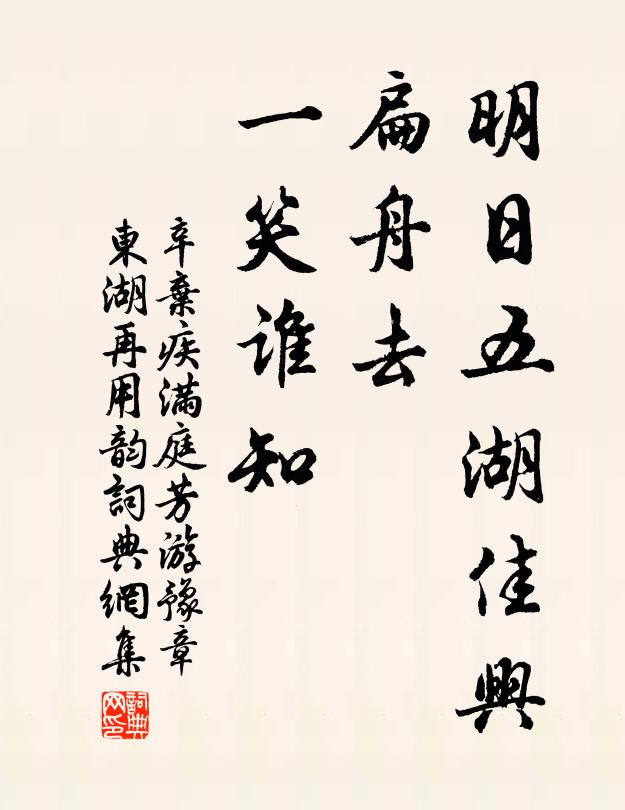 明日五湖佳興
扁舟去
一笑誰知
辛棄疾滿庭芳游豫章
東湖再用韵詞典網集
詞典
网印